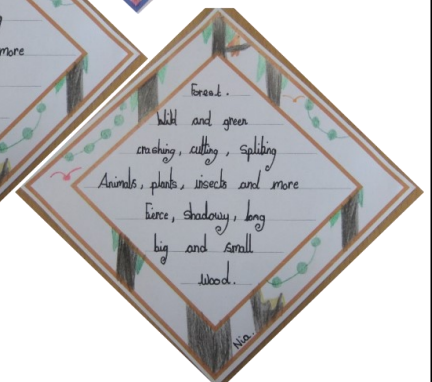 more
Forest.
Wild and green
crashing, cutting, spliting
Animals, plants, insects and more
fierce, shadowy, long
big and small
Wood.
Nia.